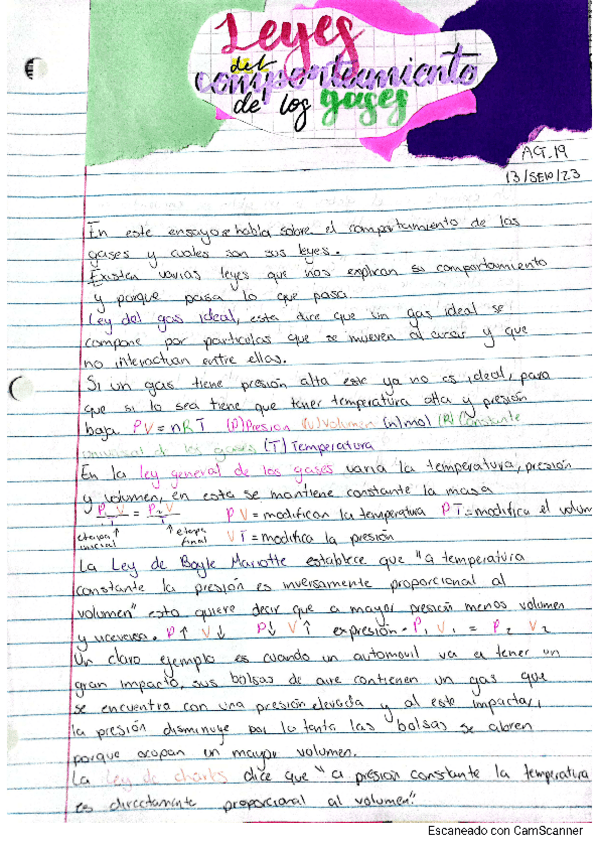 Leyes
del
comportamiento
de los gases
ACT.19
13/SEP/23
En este ensayo se habla sobre el comportamiento de los
gases y cuales son sus leyes.
Existen varias leyes que nos explican su comportamiento
y porque pasa lo que pasa.
Ley del gas ideal, esta dice que un gas ideal se
compone por particulas que se mueven al azar y que
no interactuan entre ellas.
Si un gas tiene presión alta este ya no es ideal, para
que si lo sea tiene que tener temperatura alta y presión
baja PV=nRT (P)Presion (V)Volumen (n)mol (R)Constante
universal de los gases (T) Temperatura
En la ley general de los gases varia la temperatura, presión
y volumen, en esta se mantiene constante la masa
P₁V/T = P₂V/T PV=modifican la temperatura PT=modifica el volum
etapa inicial ↑ ↑ etapa final VT=modifica la presión
La Ley de Boyle Mariotte establece que "a temperatura
constante la presión es inversamente proporcional al
volumen" esto quiere decir que a mayor presión menos volumen
y viceversa. P↑ V↓ P↓ V↑ expresión - P₁ V₁ = P₂ V₂
Un claro ejemplo es cuando un automovil va a tener un
gran impacto, sus bolsas de aire contienen un gas que
se encuentra con una presión elevada y al este impactar,
la presión disminuye por lo tanto las bolsas se abren
porque ocupan un mayor volumen.
La ley de charles dice que "a presión constante la temperatura
es directamente proporcional al volumen".
Escaneado con CamScanner